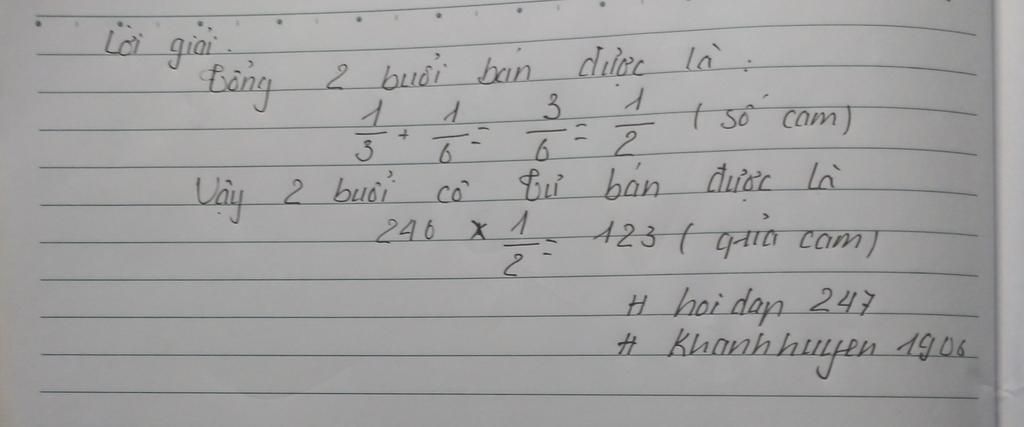 Lời giải.
Tổng 2 buổi bán được là :
1/3 + 1/6 = 3/6 = 1/2 ( số cam)
Vậy 2 buổi cô tư bán được là
246 x 1/2 = 123 ( quả cam)
# hoi dap 247
# Khanhhuyen 1906